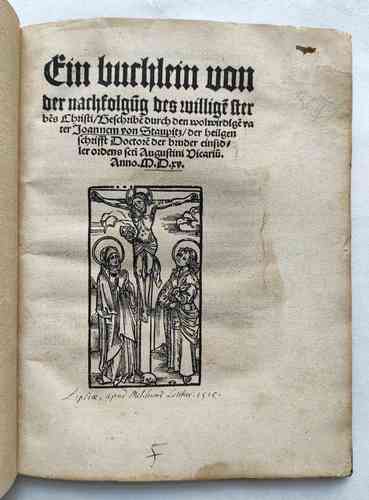 Ein buchlein von
der nachfolgūg des willigē ster
bēs Christi/ Beschribē durch den wolwirdigē va
ter Joannem von Staupitz/ der heilgen
schrifft Doctorē der bruder einsid/
ler ordens scti Augustini Vicariū.
Anno. M. D. xv.
Lipsiae, apud Melchiorē Lotther. 1515.